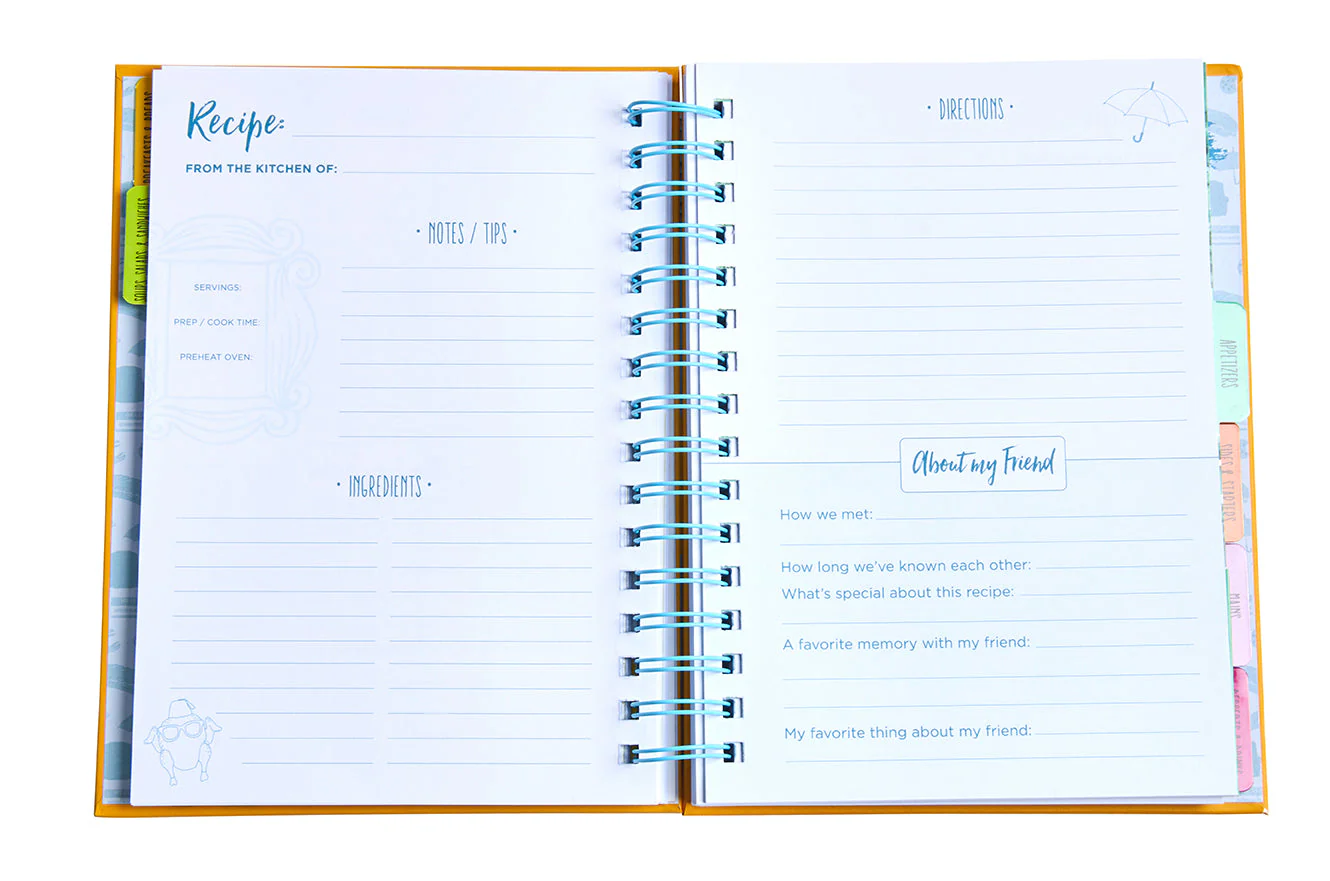 BREAKFASTS & BREADS
SOUPS, SALADS & SANDWICHES
Recipe:
FROM THE KITCHEN OF:
• NOTES / TIPS •
SERVINGS:
PREP / COOK TIME:
PREHEAT OVEN:
• INGREDIENTS •
• DIRECTIONS •
About my Friend
How we met:
How long we've known each other:
What's special about this recipe:
A favorite memory with my friend:
My favorite thing about my friend:
APPETIZERS
SIDES & STARTERS
MAINS
DESSERTS & DRINKS